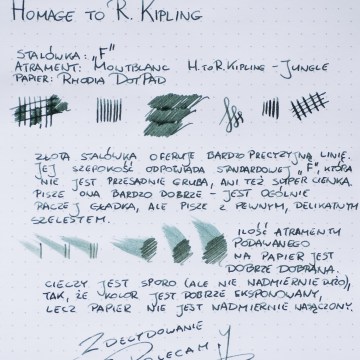 HOMAGE TO R. KIPLING
STALÓWKA: „F"
ATRAMENT: MONTBLANC H. TO R. KIPLING - JUNGLE
PAPIER: RHODIA DOTPAD
ZŁOTA STALÓWKA OFERUJE BARDZO PRECYZYJNĄ LINIĘ.
JEJ SZEROKOŚĆ ODPOWIADA STANDARDOWEJ „F", KTÓRA
NIE JEST PRZESADNIE GRUBA, ANI TEŻ SUPER CIENKA.
PISZE ONA BARDZO DOBRZE - JEST OGÓLNIE
RACZEJ GŁADKA, ALE PISZE Z PEWNYM, DELIKATNYM
SZELESTEM.
ILOŚĆ ATRAMENTU
PODAWANEGO
NA PAPIER JEST
DOBRZE DOBRANA.
CIECZY JEST SPORO (ALE NIE NADMIERNIE DUŻO),
TAK, ŻE KOLOR JEST DOBRZE EKSPONOWANY,
LECZ PAPIER NIE JEST NADMIERNIE NASĄCZONY.
ZDECYDOWANIE
POLECAM